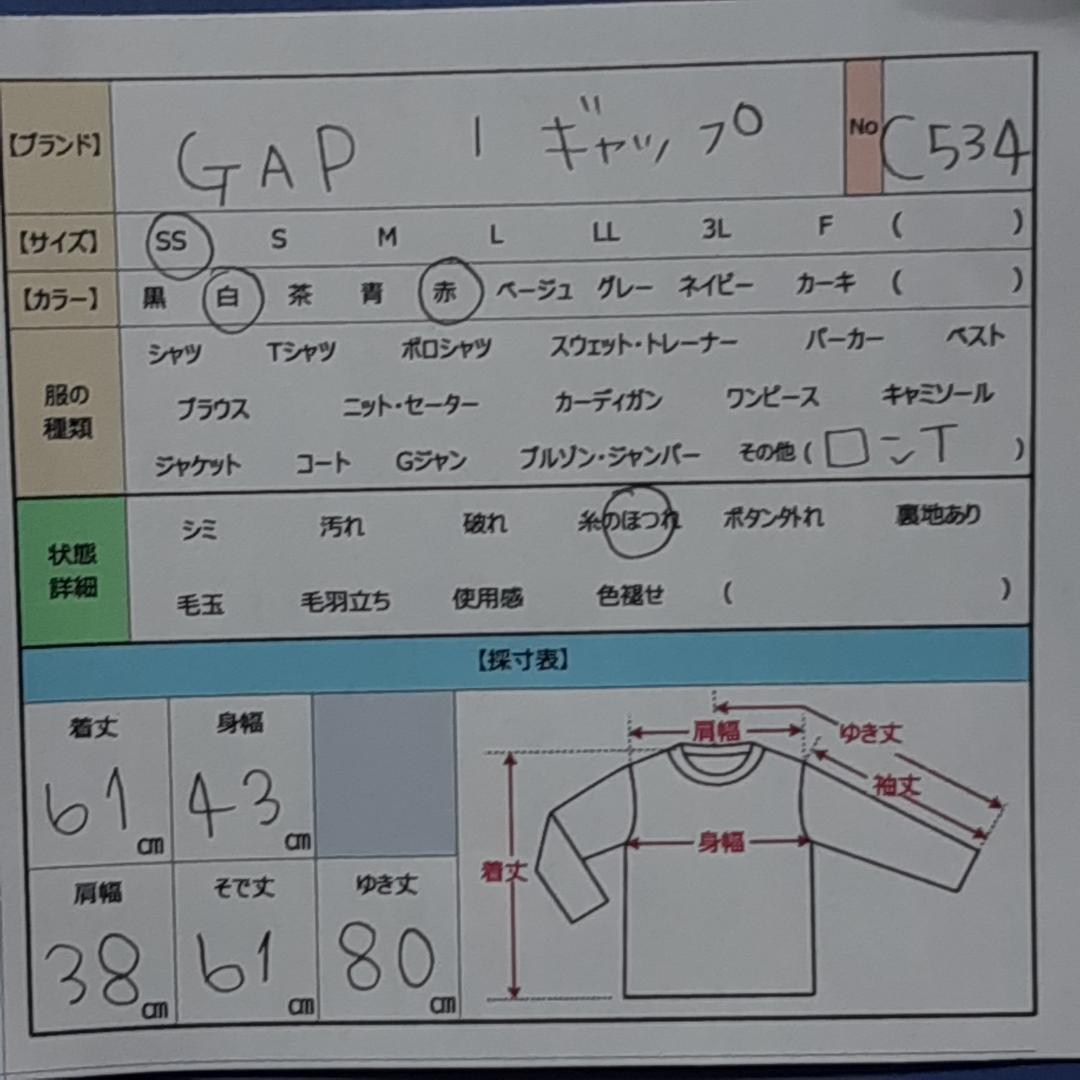 【ブランド】 GAP | ギャップ No C534
【サイズ】 SS S M L LL 3L F ( )
【カラー】 黒 白 茶 青 赤 ベージュ グレー ネイビー カーキ ( )
服の種類 シャツ Tシャツ ポロシャツ スウェット・トレーナー パーカー ベスト
ブラウス ニット・セーター カーディガン ワンピース キャミソール
ジャケット コート Gジャン ブルゾン・ジャンパー その他 ( ロンT )
状態詳細 シミ 汚れ 破れ 糸のほつれ ボタン外れ 裏地あり
毛玉 毛羽立ち 使用感 色褪せ ( )
【採寸表】
着丈 身幅
61 cm 43 cm
肩幅 そで丈 ゆき丈
38 cm 61 cm 80 cm
肩幅 ゆき丈
袖丈
身幅
着丈